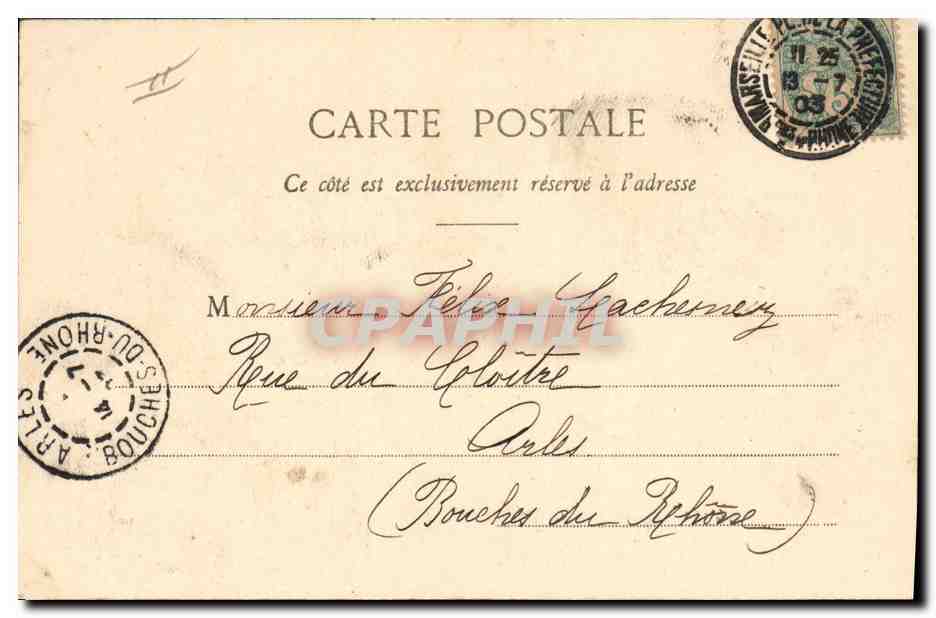 CARTE POSTALE
Ce côté est exclusivement réservé à l'adresse
Monsieur Félix Lachernezy
Rue du Cloître
Arles
(Bouches du Rhône)
CPAPHIL
MARSEILLE PL. DE LA PREFECTURE
11 25
13 - 7
03
ARLES
BOUCHES-DU-RHONE
14 - 7